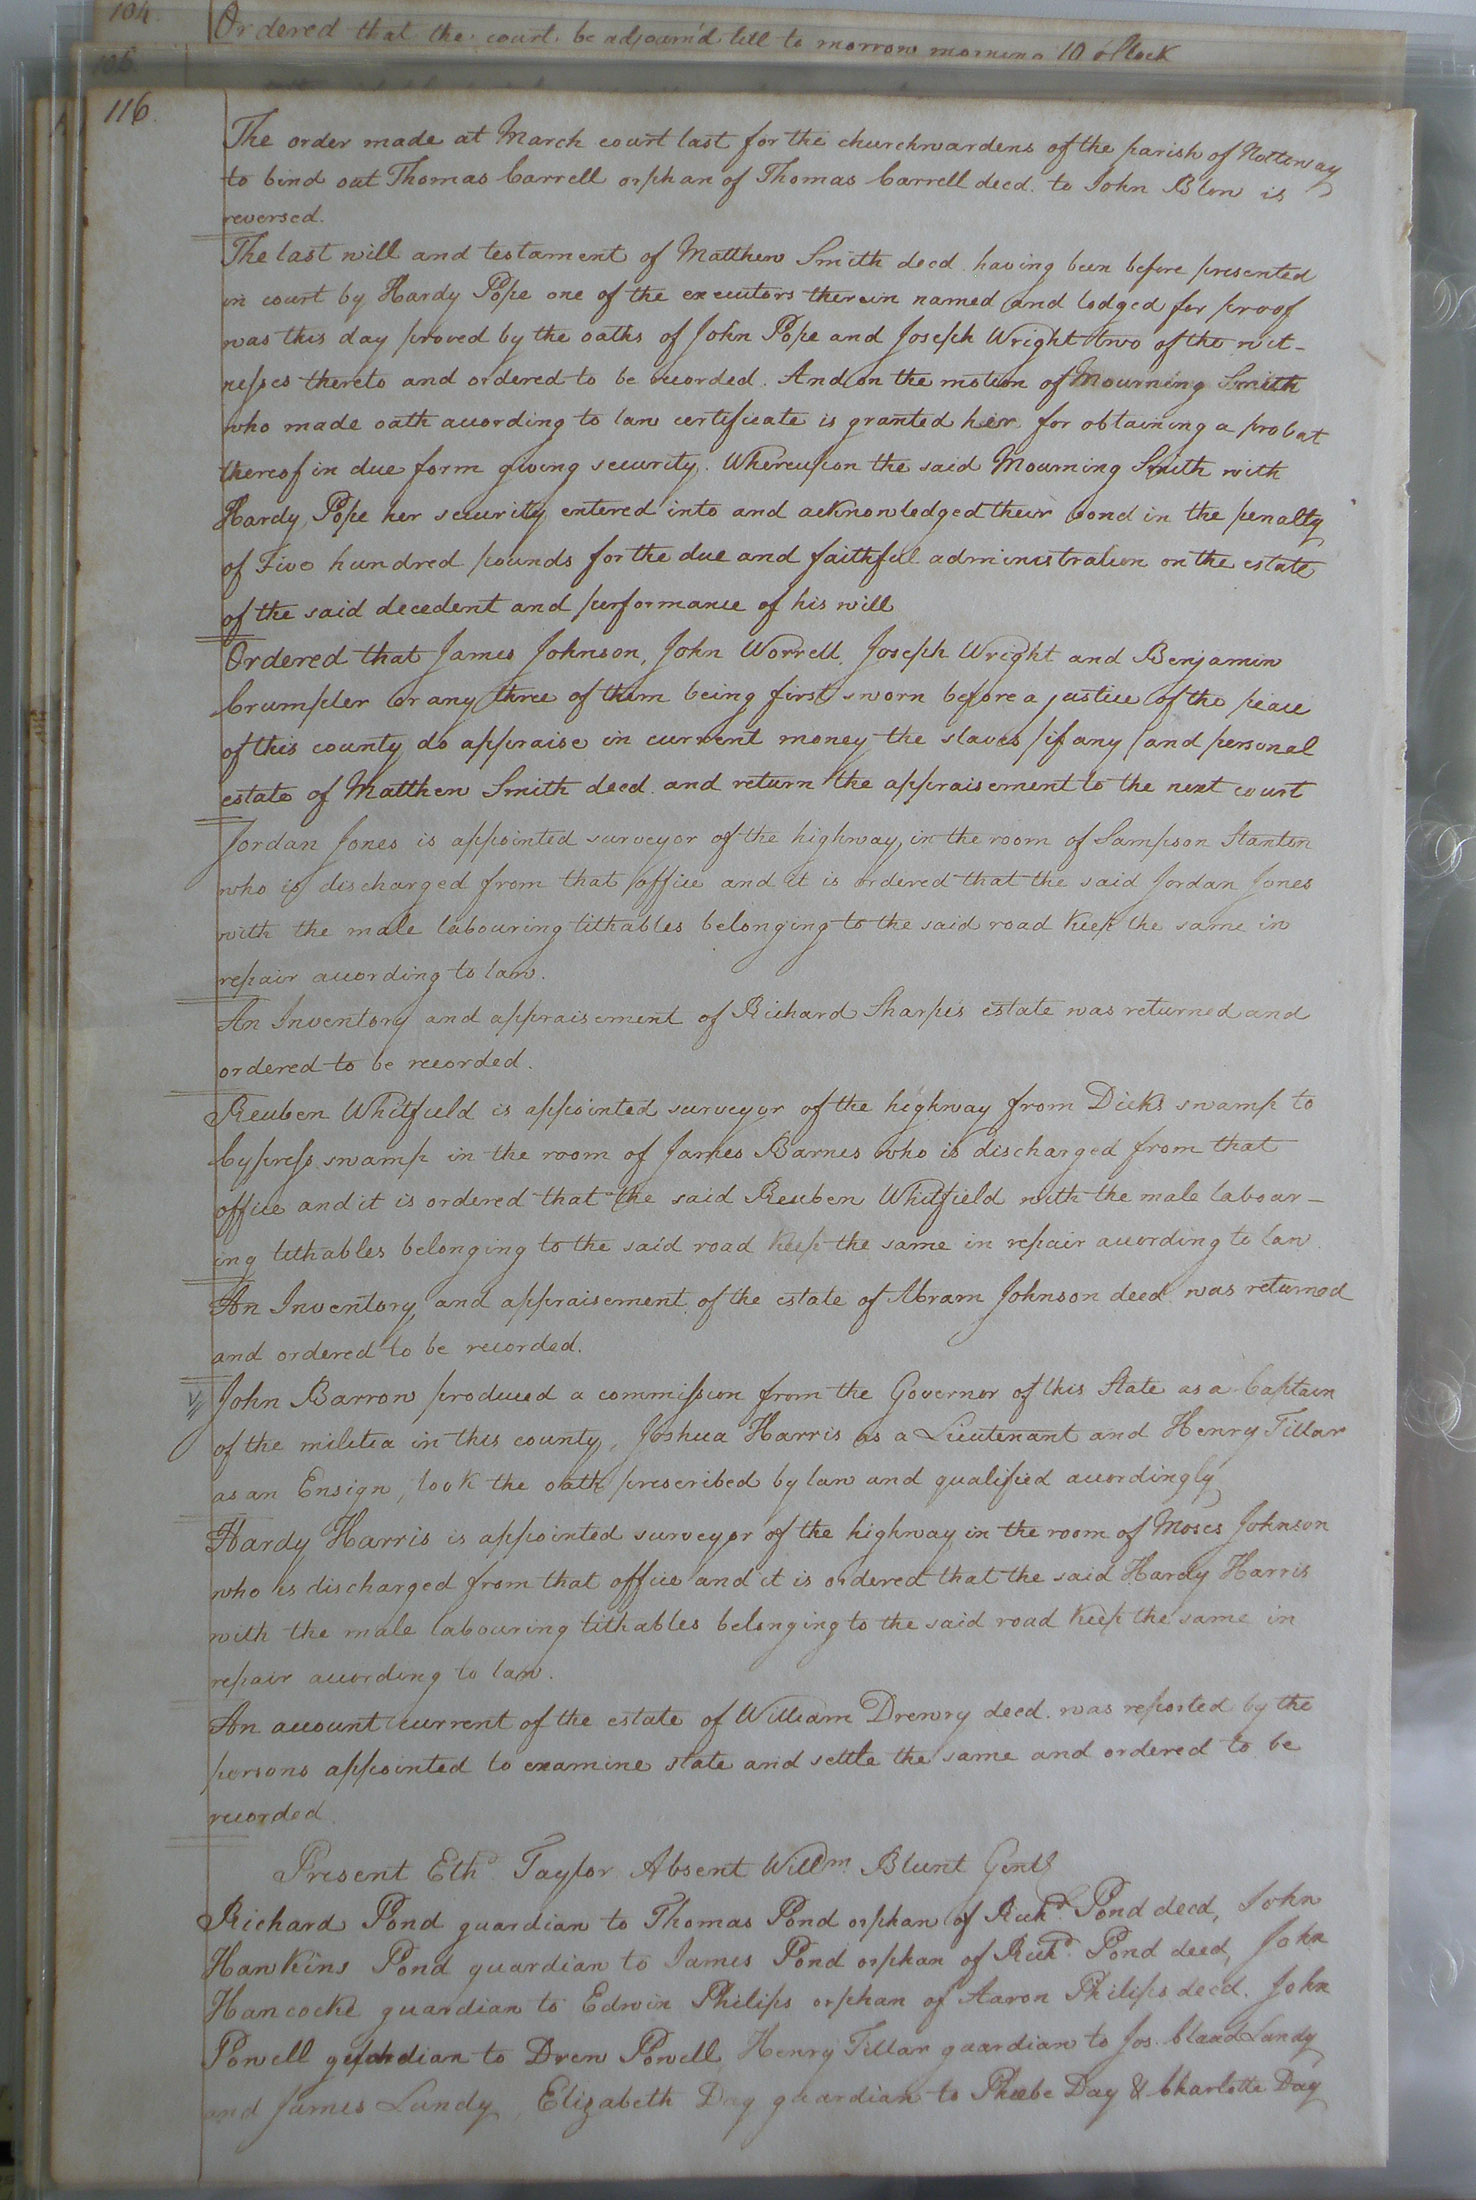 104.
Ordered that the court be adjourn'd till to morrow morning 10 o'Clock
106
116.
The order made at March court last for the churchwardens of the parish of Nottoway
to bind out Thomas Carrell orphan of Thomas Carrell deced. to John Blow is
reversed.
The last will and testament of Matthew Smith deced having been before presented
in court by Hardy Pope one of the executors therein named and lodged for proof
was this day proved by the oaths of John Pope and Joseph Wright two of the wit-
nesses thereto and ordered to be recorded. And on the motion of Mourning Smith
who made oath according to law certificate is granted her for obtaining a probat
thereof in due form giving security. Whereupon the said Mourning Smith with
Hardy Pope her security entered into and acknowledged their bond in the penalty
of Five hundred pounds for the due and faithful administration on the estate
of the said decedent and performance of his will
Ordered that James Johnson, John Worrell, Joseph Wright and Benjamin
Crumpler or any three of them being first sworn before a justice of the peace
of this county do appraise in current money the slaves /if any/ and personal
estate of Matthew Smith deced. and return the appraisement to the next court
Jordan Jones is appointed surveyor of the highway in the room of Sampson Stanton
who is discharged from that office and it is ordered that the said Jordan Jones
with the male labouring tithables belonging to the said road keep the same in
repair according to law.
An Inventory and appraisement of Richard Sharpe's estate was returned and
ordered to be recorded.
Reuben Whitfield is appointed surveyor of the highway from Dicks swamp to
Cypress swamp in the room of James Barnes who is discharged from that
office and it is ordered that the said Reuben Whitfield with the male labour-
ing tithables belonging to the said road keep the same in repair according to law
An Inventory and appraisement of the estate of Abram Johnson deced was returned
and ordered to be recorded.
John Barrow produced a commission from the Governor of this State as a Captain
of the militia in this county, Joshua Harris as a Lieutenant and Henry Tillar
as an Ensign, took the oath prescribed by law and qualified accordingly
Hardy Harris is appointed surveyor of the highway in the room of Moses Johnson
who is discharged from that office and it is ordered that the said Hardy Harris
with the male labouring tithables belonging to the said road keep the same in
repair according to law.
An account current of the estate of William Drewry deced. was reported by the
persons appointed to examine state and settle the same and ordered to be
recorded.
Present Ethd. Taylor Absent Willm. Blunt Gentl
Richard Pond guardian to Thomas Pond orphan of Richd. Pond deced, John
Hawkins Pond guardian to James Pond orphan of Richd. Pond deced, John
Hancocke guardian to Edwin Philips orphan of Aaron Philips deced. John
Powell guardian to Drew Powell, Henry Tillar guardian to Jos. Claud Lundy
and James Lundy, Elizabeth Day guardian to Phebe Day & Charlotte Day